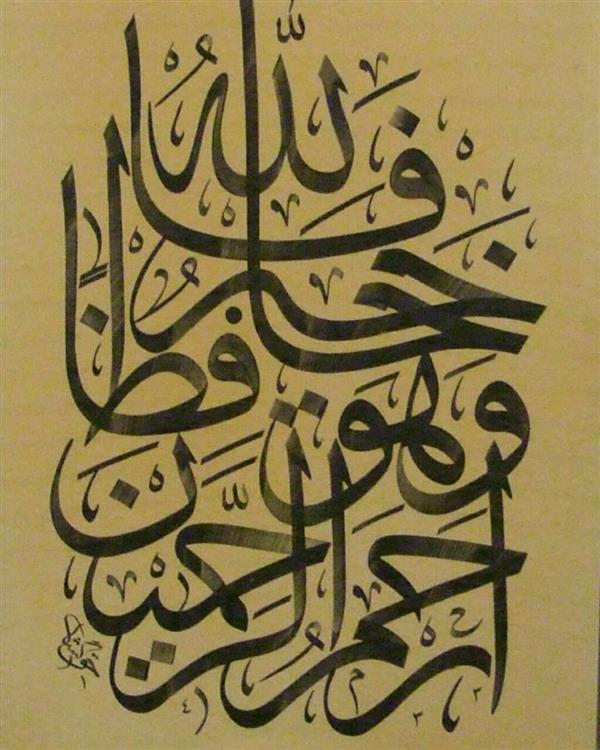 فَاللَّهُ
خَيْرٌ
حَافِظًا
وَهُوَ
أَرْحَمُ الرَّاحِمِينَ